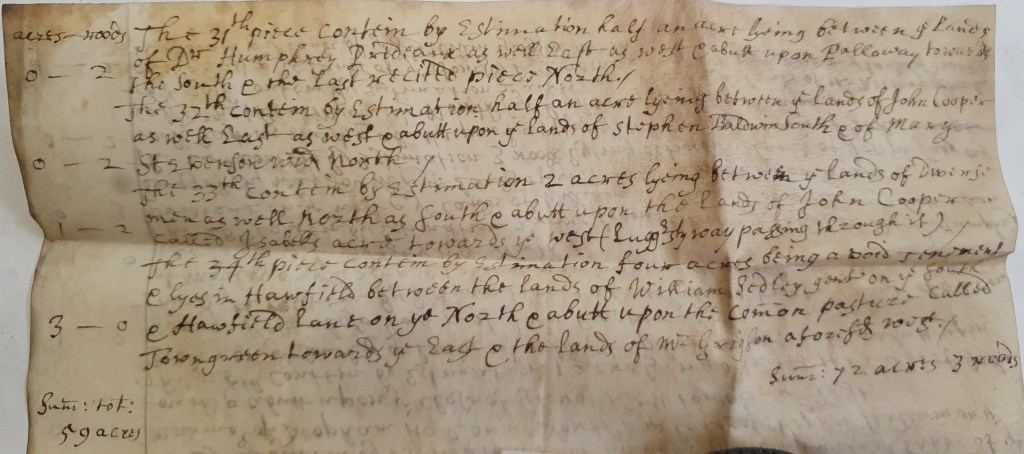 acres – roods The 31th piece contein by Estimation half an acre lyeing between ye Lands
of Dr Humphrey Prideaux as well East as west & abutt upon Palloway towards
0 – 2 the South & the Last recited piece North./
The 32th contein by Estimation half an acre lyeing between ye lands of John Cooper
as well East as west & abutt upon ye lands of Stephen Baldwin South & of Mary
0 – 2 Stevenson North /
The 33th contein by Estimation 2 acres lyeing between ye lands of Diverse
men as well North as South & abutt upon the lands of John Cooper
1 – 2 called Isabells acre towards ye west (way passing through it)
The 34th piece contein by Estimation four acres being a void tenement
& lyes in Hawfield between the lands of William Sedley gent on ye South
3 – 0 & Hawfield lane on ye North & abutt upon the comon pasture called
Towngreen towards ye East & the lands of Mr aforesd west./
Sum: 72 acres 3 roods
Sum: tot:
59 acres